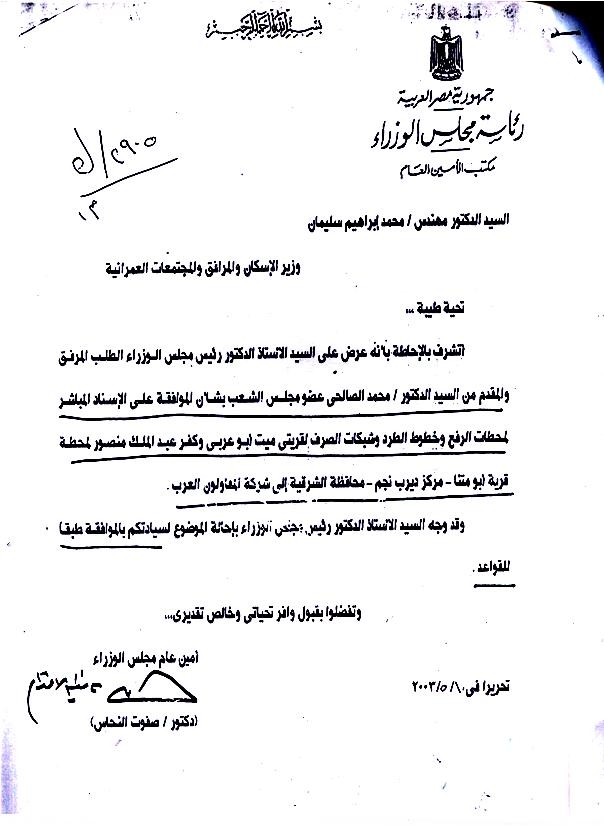 بسم الله الرحمن الرحيم
جمهورية مصر العربية
رئاسة مجلس الوزراء
مكتب الأمين العام
٢٩٠٥/ك
١٣
السيد الدكتور مهندس / محمد إبراهيم سليمان
وزير الإسكان والمرافق والمجتمعات العمرانية
تحية طيبة ...
أتشرف بالإحاطة بأنه عرض على السيد الاستاذ الدكتور رئيس مجلس الوزراء الطلب المرفق
والمقدم من السيد الدكتور / محمد الصالحى عضو مجلس الشعب بشأن الموافقة على الإسناد المباشر
لمحطات الرفع وخطوط الطرد وشبكات الصرف لقريتى ميت أبو عربى وكفر عبد الملك منصور لمحطة
قرية أبو متنا - مركز ديرب نجم - محافظة الشرقية إلى شركة المقاولون العرب .
وقد وجه السيد الاستاذ الدكتور رئيس مجلس الوزراء بإحالة الموضوع لسيادتكم بالموافقة طبقا
للقواعد .
وتفضلوا بقبول وافر تحياتى وخالص تقديرى...
أمين عام مجلس الوزراء
تحريرا فى ٢٠٠٣/٥/١٠
(دكتور / صفوت النحاس)